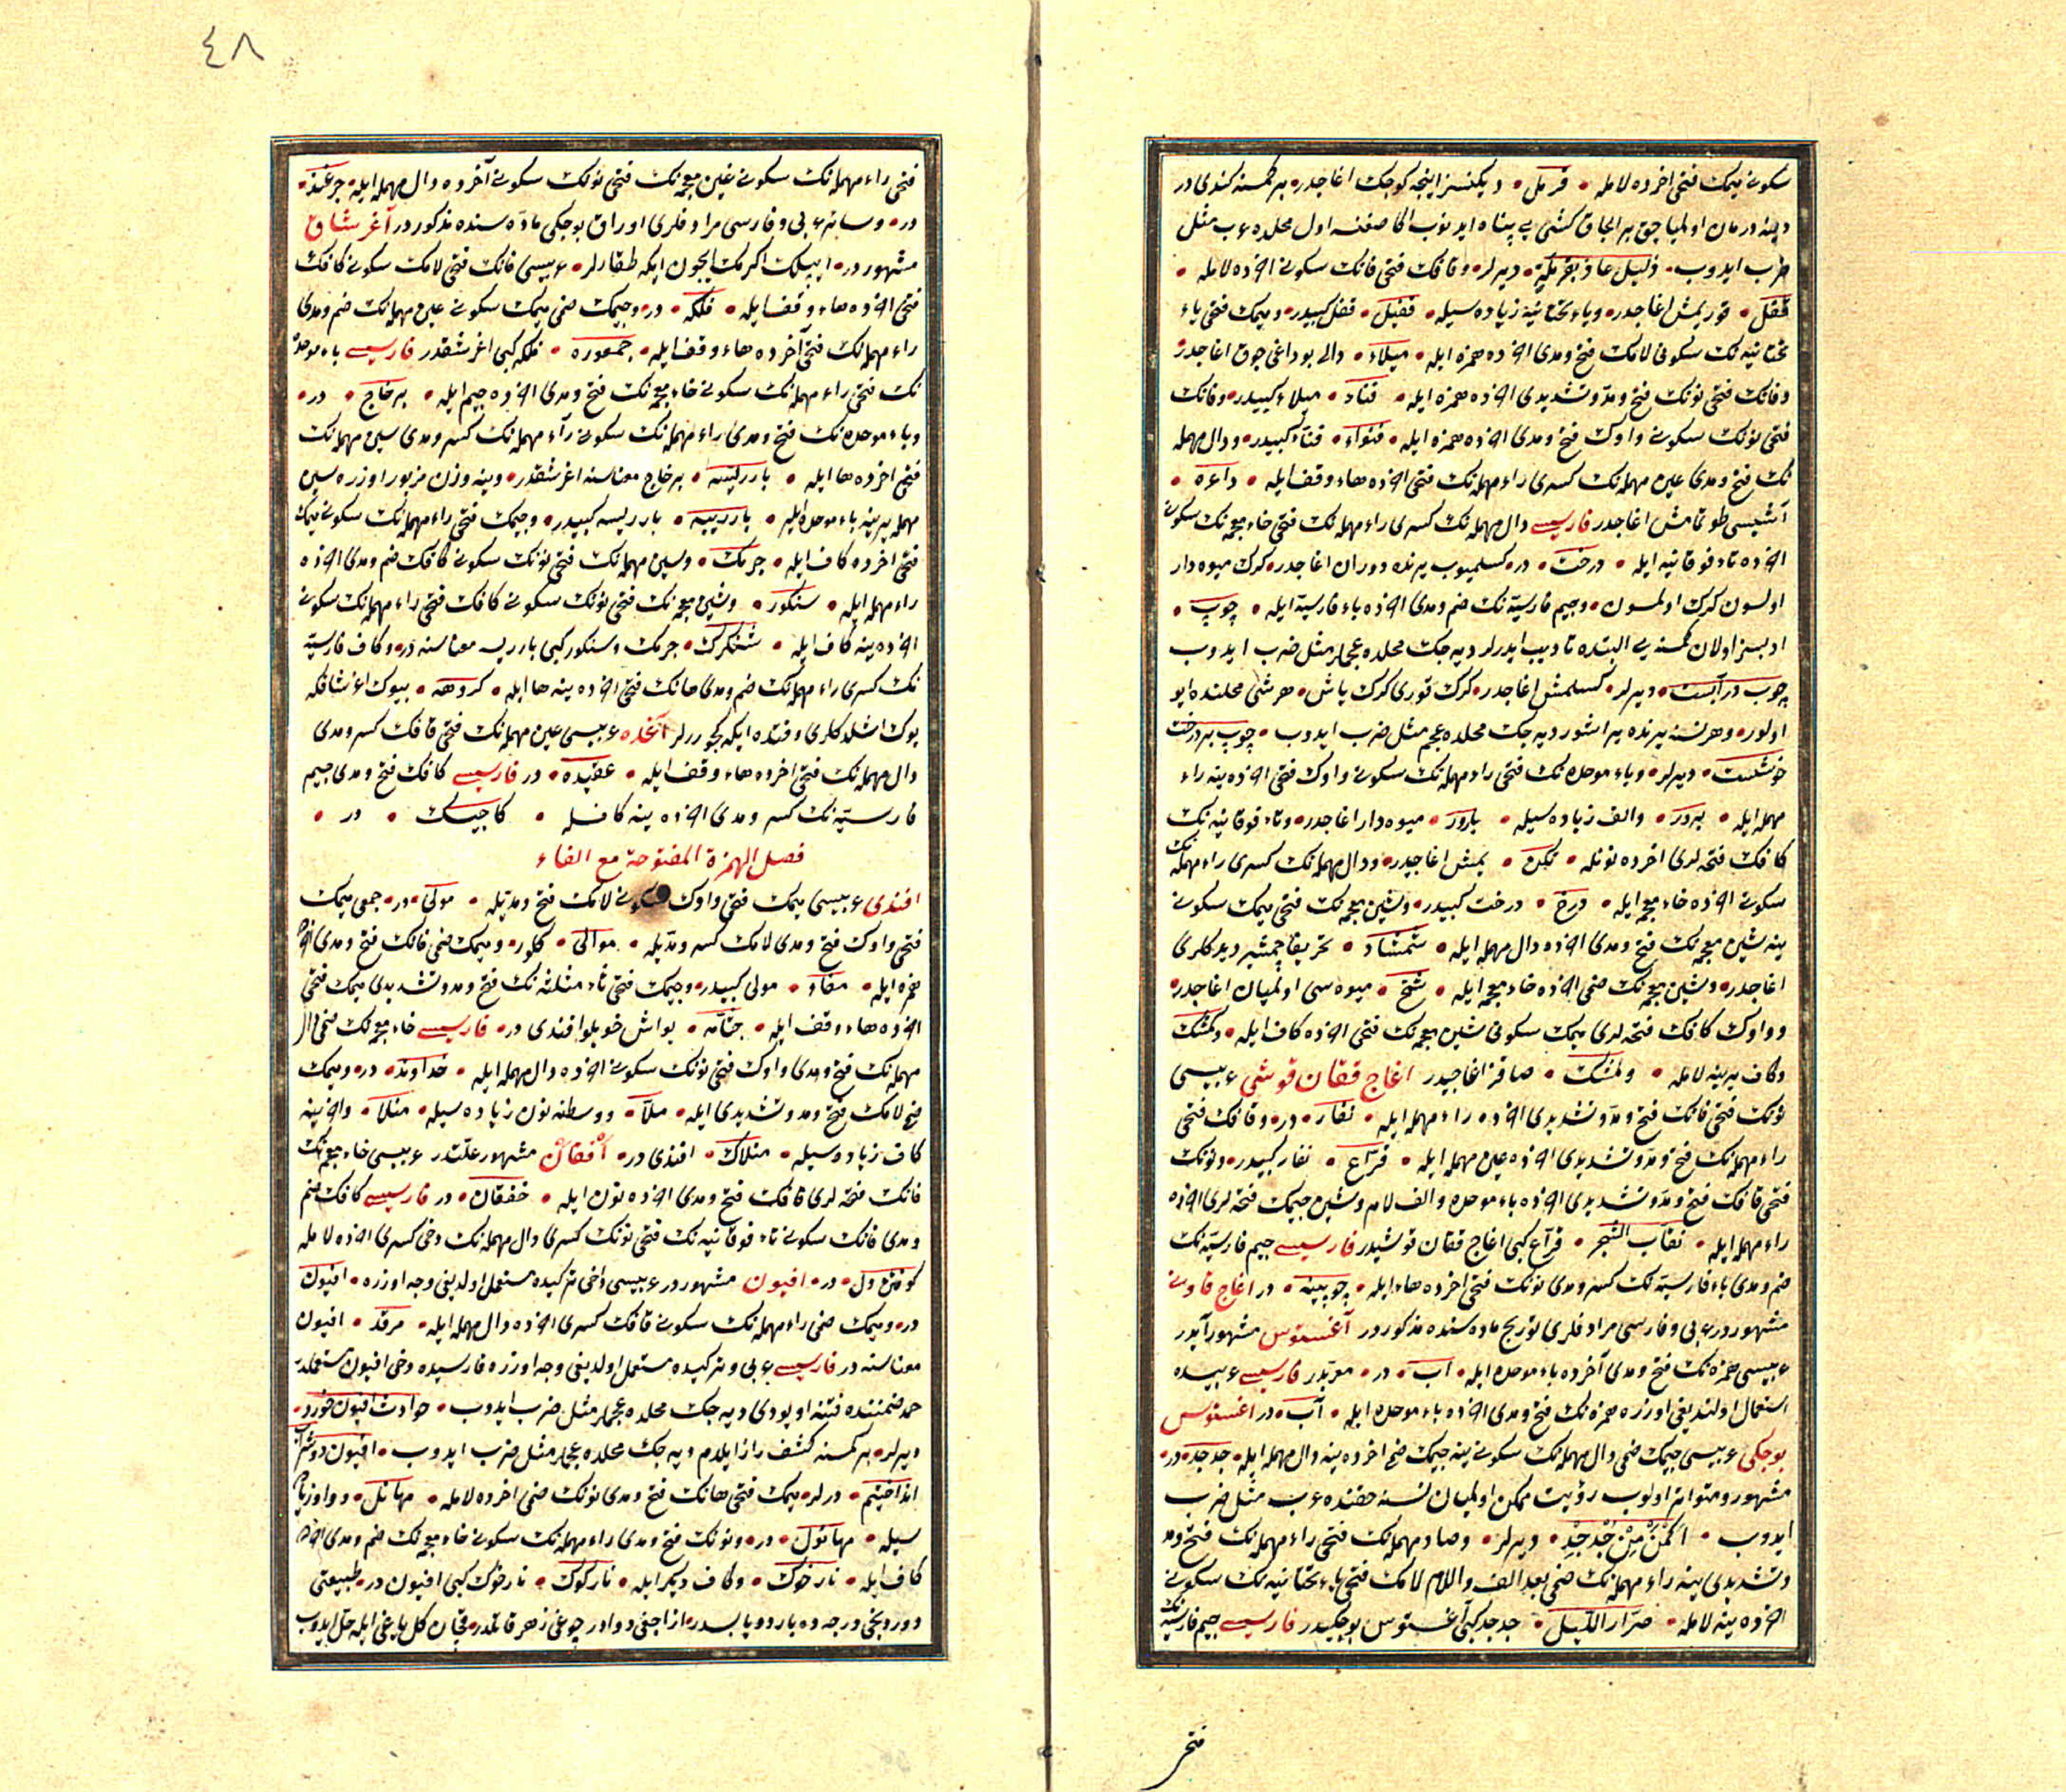 سكونى ميمك فتحى اخرده لامله • قرمل • ديكنسز اينجه كوجك اغاجدر • بر كمسنه كندى در
دينه درمان اولميا جق بر الجاق كشى يه پناه ايدنوب اكا صغنسه اول محلده عرب مثل
ضرب ايدوب • ذليل عاذ بقرملة • ديرلر • وقافك فتحى فانك سكونى اخرده لامله •
قفل • قوريمش اغاجدر • وياء تحتانيه زياده سيله • قفيل • قفل كبيدر • وميمك فتحى ياء
تحتانيه نك سكونى لامك فتح ومدى اخرده همزه ايله • ميلاء • دالى بوداغى چوق اغاجدر
وفانك فتحى نونك فتح ومد وتشديدى اخرده همزه ايله • فناء • ميلاء كبيدر • وفانك
فتحى نونك سكونى واوك فتح ومدى اخرده همزه ايله • فنواء • فناء كبيدر • ودال مهمله
نك فتح ومدى عين مهمله نك كسرى راء مهمله نك فتحى اخرده هاء وقف ايله • داعره •
آتشيسى طوتمامش اغاجدر فارسيسى دال مهمله نك كسرى راء مهمله نك فتحى خاء معجمه نك سكونى
اخرده تاء فوقانيه ايله • درخت • در • كسلميوب يرنده دوران اغاجدر • كرك ميوه دار
اولسون كرك اولمسون • وجيم فارسيه نك ضم ومدى اخرده باء فارسيه ايله • چوپ •
ادبسز اولان كمسنه يى البتده تاديب ايدرلر ديه جك محلده عجملر مثل ضرب ايدوب
چوب در آبست • ديرلر • كسلمش اغاجدر • كرك قورى كرك ياش • هر شى محلنده ايو
اولور • وهر نسنه يرنده يراشور ديه جك محلده عجم مثل ضرب ايدوب • چوب بر درخت
خوشست • ديرلر • وباء موحده نك فتحى راء مهمله نك سكونى واوك فتحى اخرده ينه راء
مهمله ايله • برور • والف زياده سيله • بارور • ميوه دار اغاجدر • وتاء فوقانيه نك
كافك فتحه لرى اخرده نونله • تكن • يمش اغاجيدر • ودال مهمله نك كسرى راء مهمله نك
سكونى اخرده خاء معجمه ايله • درخ • درخت كبيدر • وشين معجمه نك فتحى ميمك سكونى
ينه شين معجمه نك فتح ومدى اخرده دال مهمله ايله • شمشاد • تحريفا چمشير ديدكلرى
اغاجدر • وشين معجمه نك ضمى اخرده خاء معجمه ايله • شخ • ميوه سى اولميان اغاجدر •
وواوك كافك فتحه لرى ميمك سكونى شين معجمه نك فتحى اخرده كاف ايله • وكمشك
وكاف يرينه لامله • ولمشك • صاقز اغاجيدر اغاج قاقان قوشى عربيسى
نونك فتحى قافك فتح ومد وتشديدى اخرده راء مهمله ايله • نقار • در • وقافك فتحى
راء مهمله نك فتح ومد وتشديدى اخرده عين مهمله ايله • قراع • نقار كبيدر • ونونك
فتحى قافك فتح ومد وتشديدى اخرده باء موحده والف لام وشين جيمك فتحه لرى اخرده
راء مهمله ايله • نقاب الشجر • قراع كبى اغاج قاقان قوشيدر فارسيسى جيم فارسيه نك
ضم ومدى باء فارسيه نك كسر ومدى نونك فتحى اخرده هاء ايله • چوپينه • در اغاج قاونى
مشهور در عربى وفارسى مرادفلرى تورنج ماده سنده مذكور در آغستوس مشهور آيدر
عربيسى همزه نك فتح ومدى آخرده باء موحده ايله • آب • در • معربدر فارسيسى عربيده
استعمال اولنديغى اوزره همزه نك فتح ومدى اخرده باء موحده ايله • آب • در اغستوس
بوجكى عربيسى جيمك ضمى دال مهمله نك سكونى ينه جيمك ضمى اخرده ينه دال مهمله ايله • جدجد • در •
مشهور ومتواتر اولوب رؤيت ممكن اولميان نسنه حقنده عرب مثل ضرب
ايدوب • اكمن من جدجد • ديرلر • وصاد مهمله نك فتحى راء مهمله نك فتح ومد
وتشديدى ينه راء مهمله نك ضمى بعد الف واللام لامك فتحى ياء تحتانيه نك سكونى
اخرده ينه لامله • صرار الليل • جدجد كبى آغستوس بوجكيدر فارسيسى جيم فارسيه نك
فتحى
٤٨
فتحى راء مهمله نك سكونى غين معجمه نك فتحى نونك سكونى آخرده دال مهمله ايله • چرغند •
در • وسائر عربى وفارسى مرادفلرى اوراق بوجكى ماده سنده مذكور در آغرشاق
مشهور در • ايپلك اكرمك ايچون ايكه طقارلر • عربيسى فانك فتحى لامك سكونى كافك
فتحى اخرده هاء وقف ايله • فلكه • در • وجيمك ضمى ميمك سكونى عين مهمله نك ضم ومدى
راء مهمله نك فتحى آخرده هاء وقف ايله • جمعوره • فلكه كبى اغرشقدر فارسيسى باء موحده
نك فتحى راء مهمله نك سكونى خاء معجمه نك فتح ومدى اخرده جيم ايله • برخاج • در •
وباء موحده نك فتح ومدى راء مهمله نك سكونى راء مهمله نك كسر ومدى سين مهمله نك
فتحى اخرده ها ايله • بارريسه • برخاج معناسنه اغرشقدر • وينه وزن مزبور اوزره سين
مهمله يرينه باء موحده ايله • بارريبه • بارريسه كبيدر • وجيمك فتحى راء مهمله نك سكونى ميمك
فتحى اخرده كاف ايله • جرمك • وسين مهمله نك فتحى نونك سكونى كافك ضم ومدى اخرده
راء مهمله ايله • سنكور • وشين معجمه نك فتحى نونك سكونى كافك فتحى راء مهمله نك سكونى
اخرده ينه كاف ايله • شنكرك • جرمك وسنكور كبى بارريسه معناسنه در • وكاف فارسيه
نك كسرى راء مهمله نك ضم ومدى هانك فتحى اخرده ينه ها ايله • كروهه • بيوك اغرشاقكه
يوك اشلدكلرى وقتده ايكه كچوررلر آغده عربيسى عين مهمله نك فتحى قافك كسر ومدى
دال مهمله نك فتحى اخرده هاء وقف ايله • عقيده • در فارسيسى كافك فتح ومدى جيم
فارسيه نك كسر ومدى اخرده ينه كافله • كاچيك • در •
فصل الهمزة المفتوحة مع الفاء
افندى عربيسى ميمك فتحى واوك سكونى لامك فتح ومديله • مولى • در • جمعى ميمك
فتحى واوك فتح ومدى لامك كسر ومديله • موالى • كلور • وميمك ضمى فانك فتح ومدى اخرده
همزه ايله • مفاء • مولى كبيدر • وجيمك فتحى ثاء مثلثه نك فتح ومد وتشديدى ميمك فتحى
اخرده هاء وقف ايله • جثامه • يواش خويلو افندى در • فارسيسى خاء معجمه نك ضمى دال
مهمله نك فتح ومدى واوك فتحى نونك سكونى اخرده دال مهمله ايله • خداوند • در • وميمك
فتح لامك فتح ومد وتشديدى ايله • ملا • ووسطنه نون زياده سيله • منلا • واخرينه
كاف زياده سيله • منلاك • افندى در • افقان مشهور علتدر عربيسى خاء معجمه نك
فانك فتحه لرى قافك فتح ومدى اخرده نون ايله • خفقان • در فارسيسى كافك ضم
ومدى فانك سكونى تاء فوقانيه نك فتحى نونك كسرى دال مهمله نك دخى كسرى اخرده لامله
كوفتن دل • در • افيون مشهور در عربيسى دخى تركيده مستعمل اولديغى وجه اوزره • افيون
در • وميمك ضمى راء مهمله نك سكونى قافك كسرى اخرده دال مهمله ايله • مرقد • افيون
معناسنه در فارسيسى عربى وتركيده مستعمل اولديغى وجه اوزره فارسيده دخى افيون مستعملدر
حمد ضمننده فتنه اويودى ديه جك محلده عجملر مثل ضرب ايدوب • حوادث افيون خورد •
ديرلر • بر كمسنه كشف راز ايلدم ديه جك محلده عجملر مثل ضرب ايدوب • افيون در شراب
انداختيم • درلر • ميمك فتحى هانك فتح ومدى نونك ضمى اخرده لامله • مهانل • وواو زياده
سيله • مهانول • در • ونونك فتح ومدى راء مهمله نك سكونى خاء معجمه نك ضم ومدى اخرده
كاف ايله • نارخوك • وكاف ديكر ايله • ناركوك • نارخوك كبى افيون در • طبيعتى
دوردنجى درجه ده بارد ويابسدر • از اجغى دوادر چوغى زهر قاتلدر • قچان كل ياغى ايله حل ايدوب